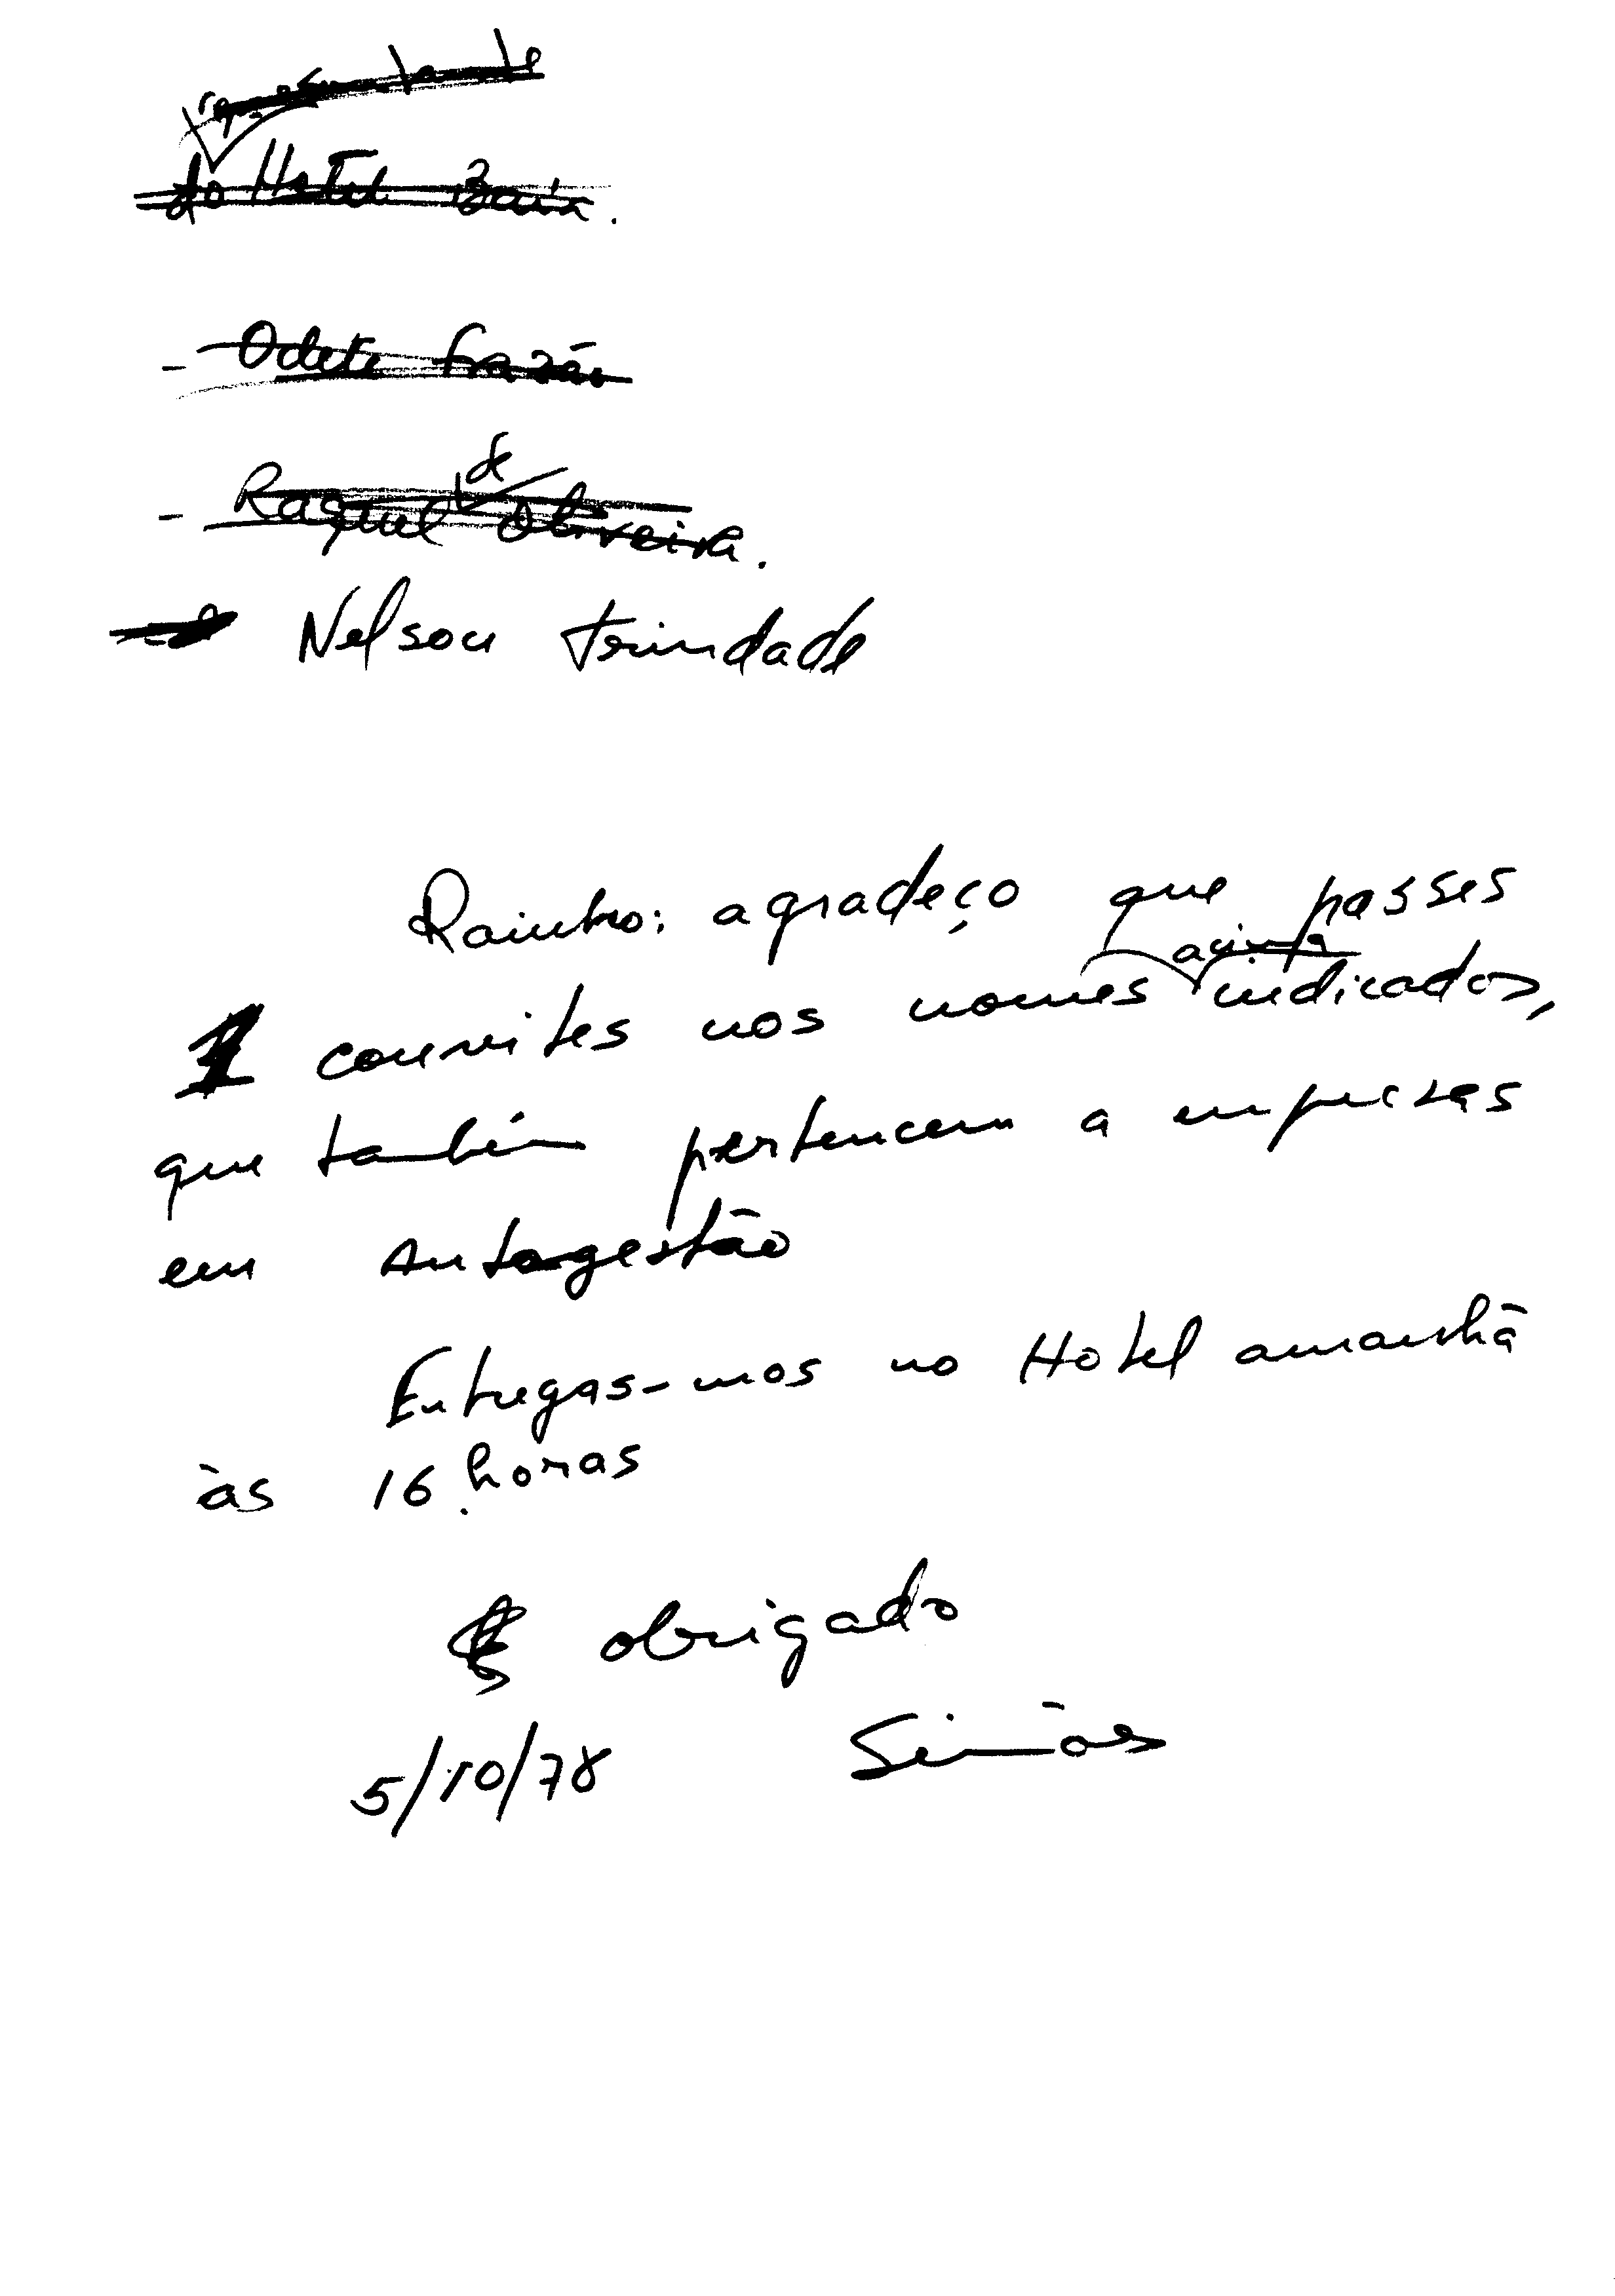 representante
do Hotel Baía.
- Odete Frazão
- Raquel de Oliveira.
Nelson Trindade
Rainho: agradeço que passes
convites nos nomes acima indicados,
que também pertencem a empresas
em Autogestão
Entregas-mos no Hotel amanhã
às 16 horas
obrigado
Simões
5/10/78